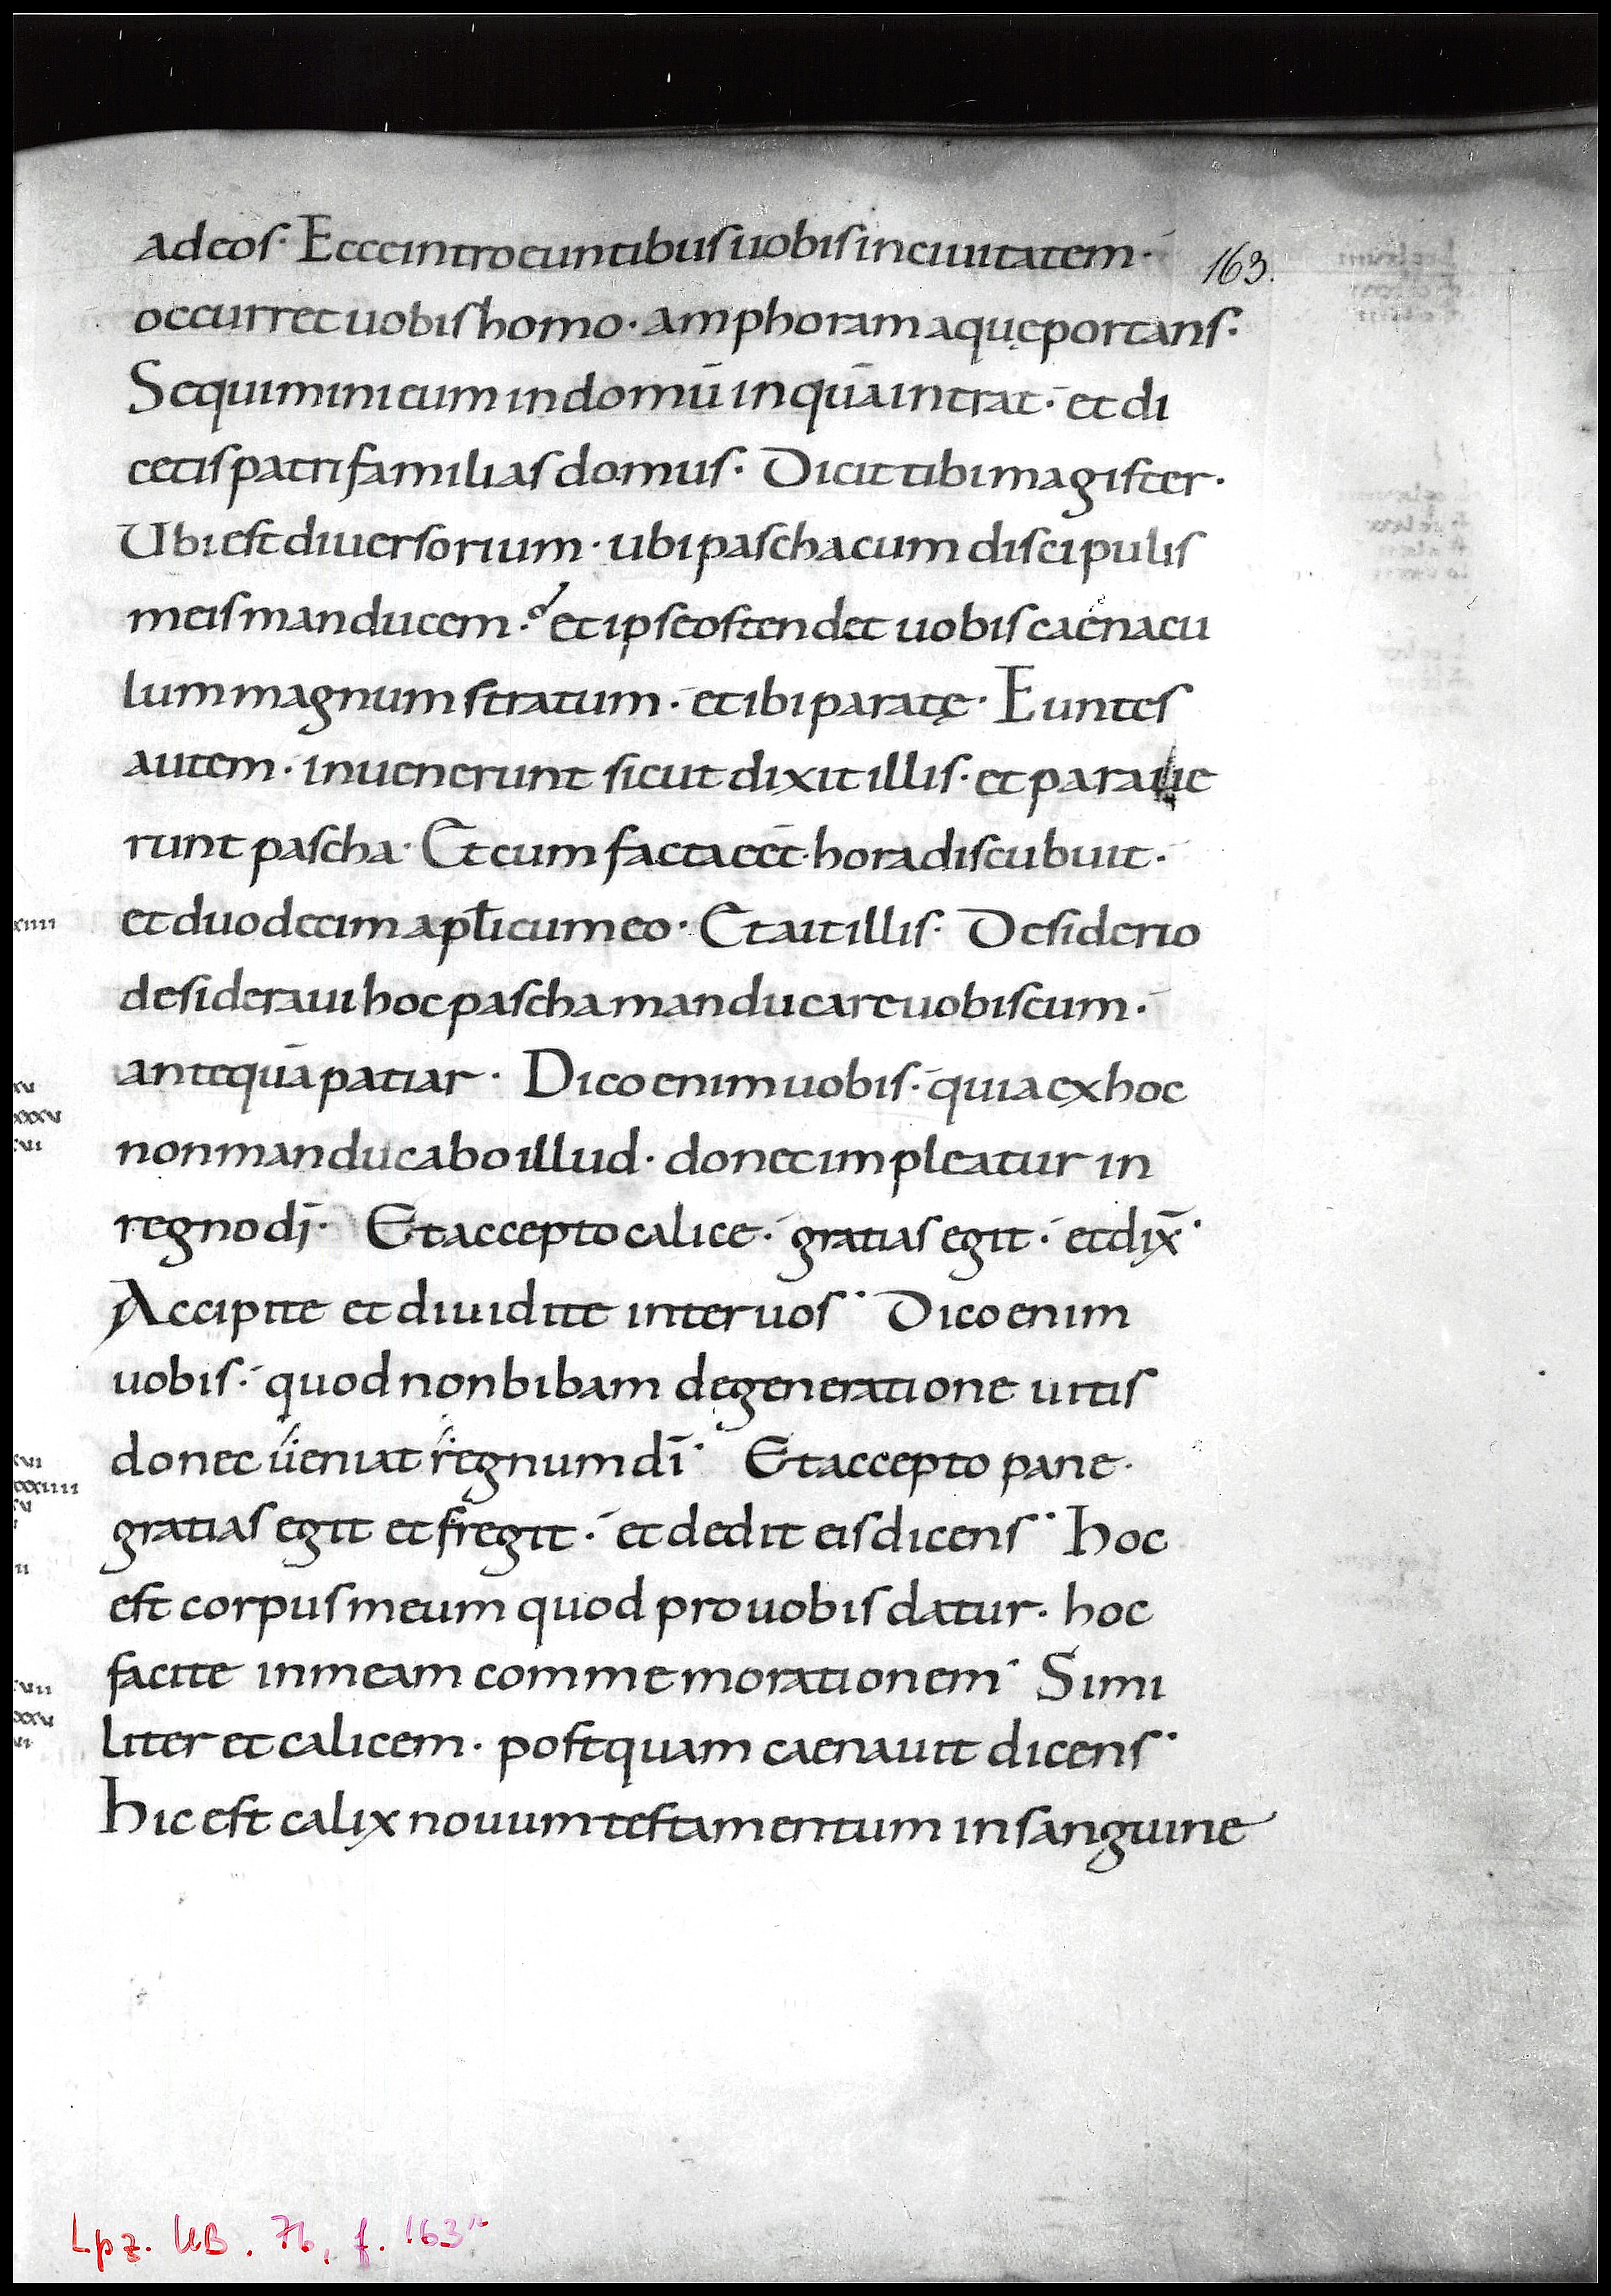 ad eos· Ecce introeuntibus uobis in ciuitatem·
163.
occurret uobis homo· amphoram aquę portans·
Sequimini eum in domū in quā intrat· et di
cetis patri familias domus· Dicit tibi magister·
Ubi est diuersorium· ubi pascha cum discipulis
meis manducem· et ipse ostendet uobis caenacu
lum magnum stratum· et ibi paratę· Euntes
autem· inuenerunt sicut dixit illis· et paraue
runt pascha· Et cum facta eēt hora discubuit·
et duodecim apłi cum eo· Et ait illis· Desiderio
xiiii
desideraui hoc pascha manducare uobiscum·
antequā patiar· Dico enim uobis· quia ex hoc
non manducabo illud· donec impleatur in
regno dī· Et accepto calice· gratias egit· et dix̄·
Accipite et diuidite inter uos· Dico enim
uobis· quod non bibam de generatione uitis
donec ueniat regnum dī· Et accepto pane·
gratias egit et fregit· et dedit eis dicens· hoc
est corpus meum quod pro uobis datur· hoc
facite in meam commemorationem· Simi
liter et calicem· postquam caenauit dicens·
hic est calix nouum testamentum in sanguine
Lpz. UB. 76, f. 163r